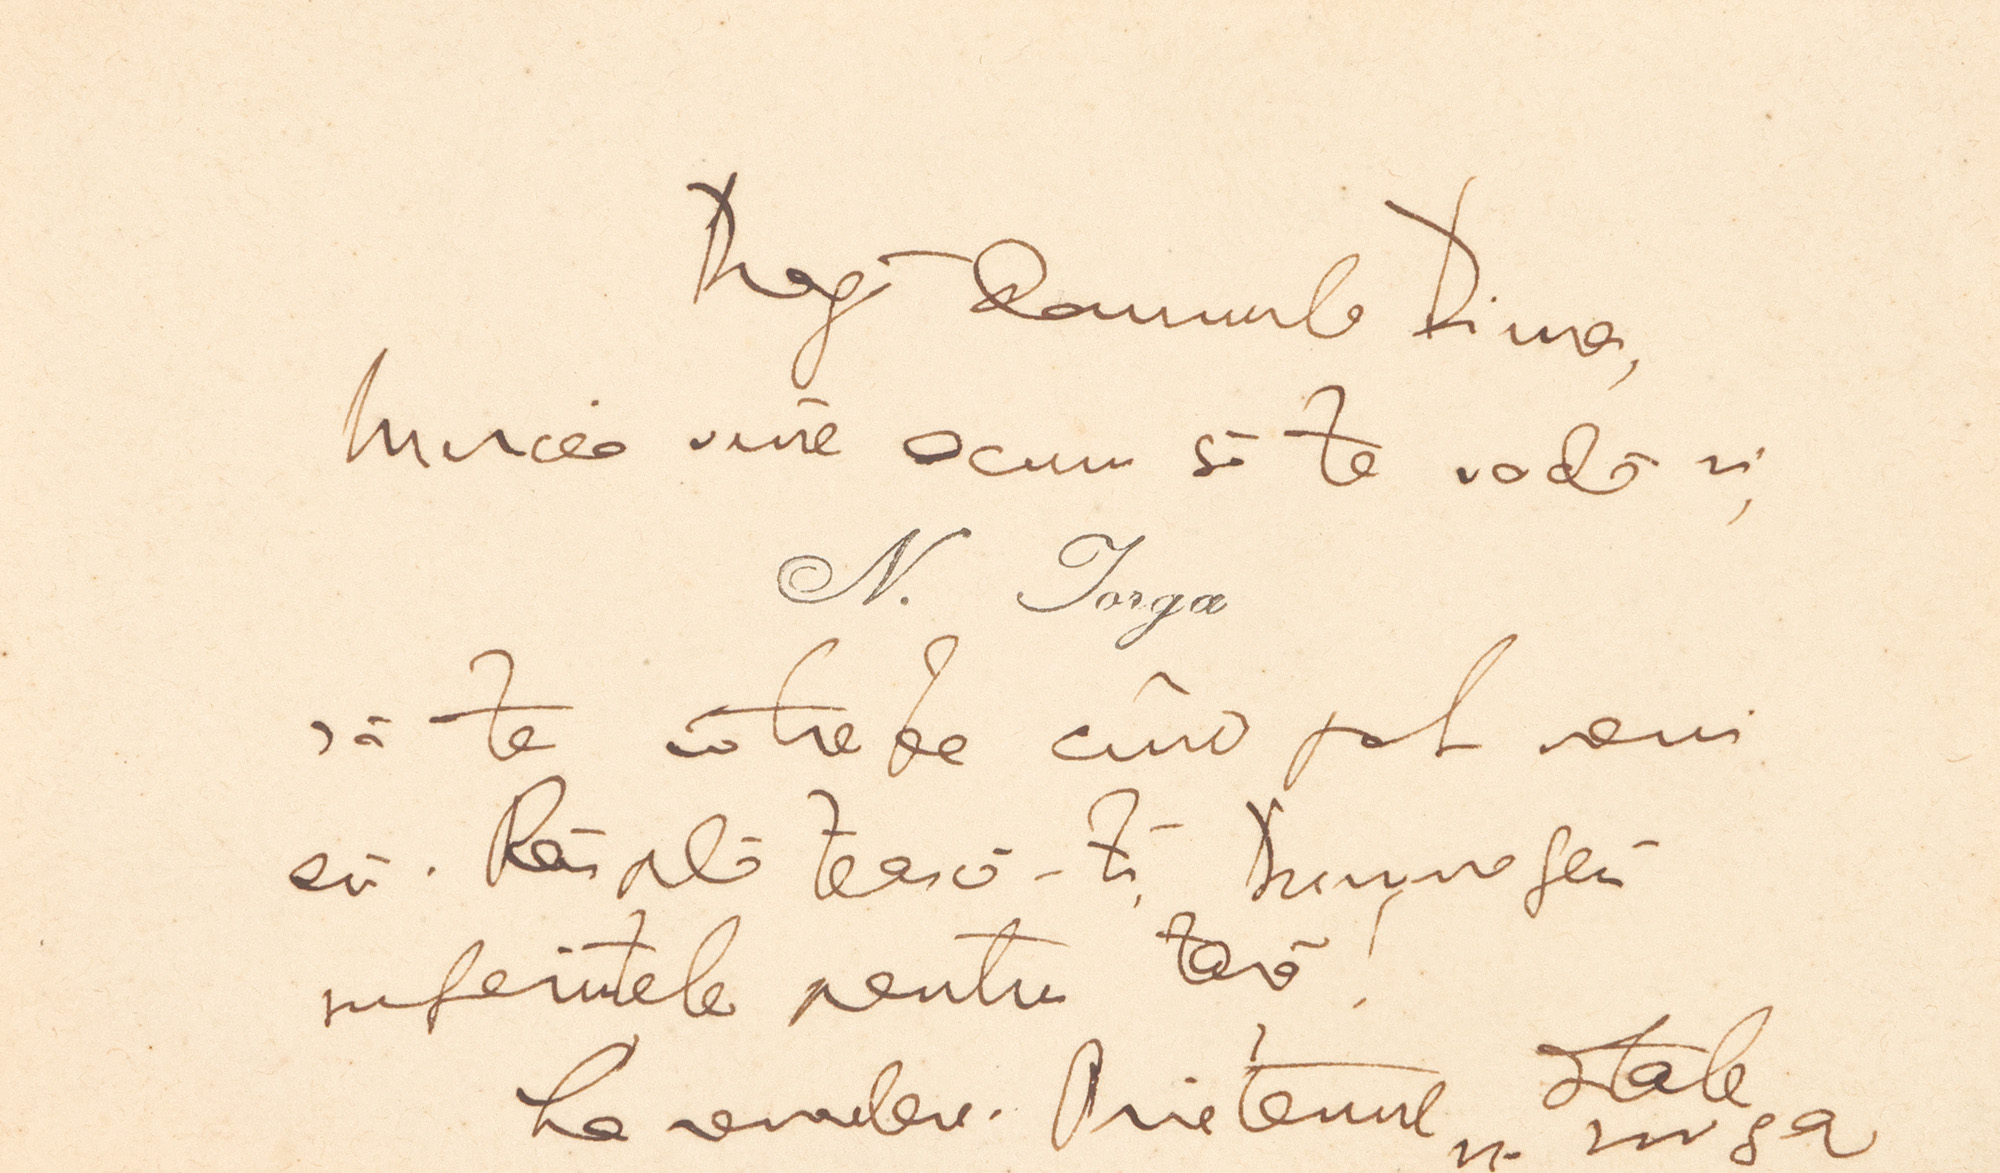 Dragă Domnule Dima,
Mircea vine acum să te vadă și,
N. Iorga
să te întrebe cînd pot veni
eu. Răsplătească-ți Dumnezeu
suferințele pentru țară!
La revedere. Prietenul
N. Iorga